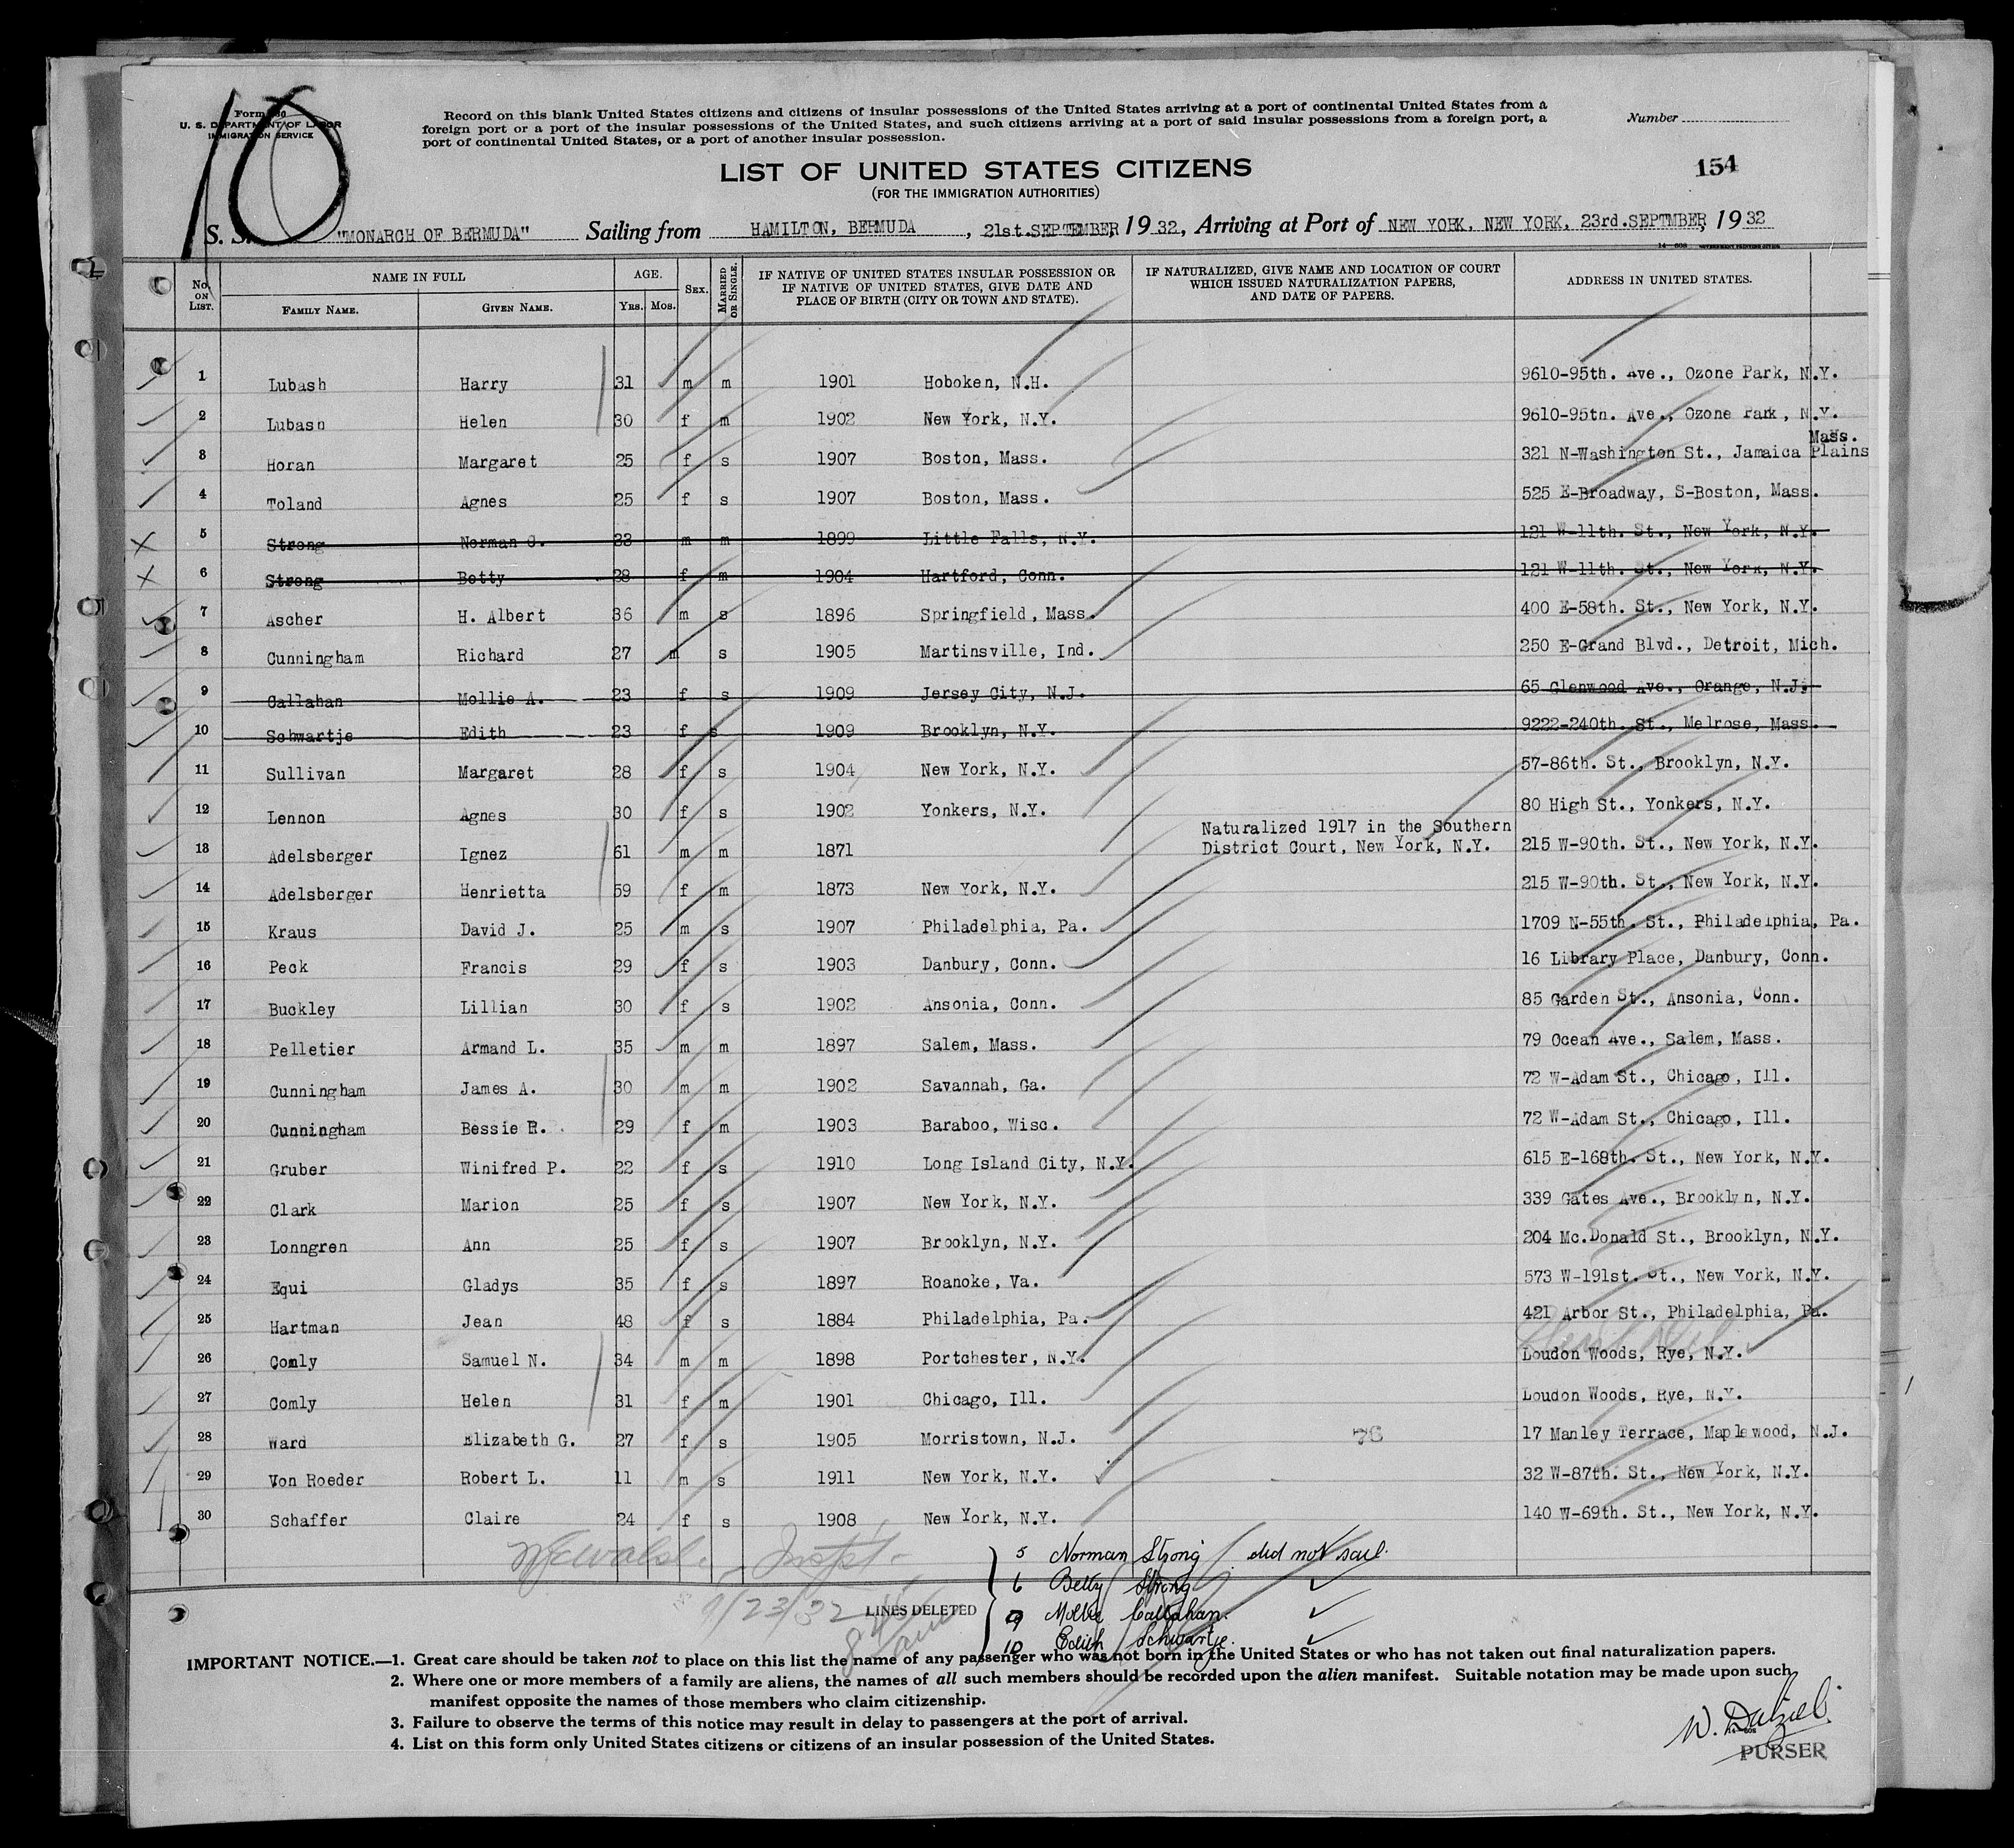 10
Form 630
U. S. DEPARTMENT OF LABOR
IMMIGRATION SERVICE
Record on this blank United States citizens and citizens of insular possessions of the United States arriving at a port of continental United States from a
foreign port or a port of the insular possessions of the United States, and such citizens arriving at a port of said insular possessions from a foreign port, a
port of continental United States, or a port of another insular possession.
Number
154
LIST OF UNITED STATES CITIZENS
(FOR THE IMMIGRATION AUTHORITIES)
S. S. "MONARCH OF BERMUDA" Sailing from HAMILTON, BERMUDA, 21st.SEPTEMBER, 1932, Arriving at Port of NEW YORK, NEW YORK, 23rd.SEPTMBER, 1932
No. ON LIST. NAME IN FULL FAMILY NAME. GIVEN NAME. AGE. YRS. MOS. SEX. MARRIED OR SINGLE. IF NATIVE OF UNITED STATES INSULAR POSSESSION OR IF NATIVE OF UNITED STATES, GIVE DATE AND PLACE OF BIRTH (CITY OR TOWN AND STATE). IF NATURALIZED, GIVE NAME AND LOCATION OF COURT WHICH ISSUED NATURALIZATION PAPERS, AND DATE OF PAPERS. ADDRESS IN UNITED STATES.
1 Lubash Harry 31 m m 1901 Hoboken, N.H. 9610-95th. Ave., Ozone Park, N.Y.
2 Lubash Helen 30 f m 1902 New York, N.Y. 9610-95th. Ave., Ozone Park, N.Y.
3 Horan Margaret 25 f s 1907 Boston, Mass. 321 N-Washington St., Jamaica Plains Mass.
4 Toland Agnes 25 f s 1907 Boston, Mass. 525 E-Broadway, S-Boston, Mass.
5 Strong Norman G. 33 m m 1899 Little Falls, N.Y. 121 W-11th. St., New York, N.Y.
6 Strong Betty 28 f m 1904 Hartford, Conn. 121 W-11th. St., New York, N.Y.
7 Ascher H. Albert 36 m s 1896 Springfield, Mass. 400 E-58th. St., New York, N.Y.
8 Cunningham Richard 27 m s 1905 Martinsville, Ind. 250 E-Grand Blvd., Detroit, Mich.
9 Callahan Mollie A. 23 f s 1909 Jersey City, N.J. 65 Glenwood Ave., Orange, N.J.
10 Schwartje Edith 23 f s 1909 Brooklyn, N.Y. 9222-240th. St., Melrose, Mass.
11 Sullivan Margaret 28 f s 1904 New York, N.Y. 57-86th. St., Brooklyn, N.Y.
12 Lennon Agnes 30 f s 1902 Yonkers, N.Y. 80 High St., Yonkers, N.Y.
13 Adelsberger Ignez 61 m m 1871 Naturalized 1917 in the Southern District Court, New York, N.Y. 215 W-90th. St., New York, N.Y.
14 Adelsberger Henrietta 59 f m 1873 New York, N.Y. 215 W-90th. St., New York, N.Y.
15 Kraus David J. 25 m s 1907 Philadelphia, Pa. 1709 N-55th. St., Philadelphia, Pa.
16 Peck Francis 29 f s 1903 Danbury, Conn. 16 Library Place, Danbury, Conn.
17 Buckley Lillian 30 f s 1902 Ansonia, Conn. 85 Garden St., Ansonia, Conn.
18 Pelletier Armand L. 35 m m 1897 Salem, Mass. 79 Ocean Ave., Salem, Mass.
19 Cunningham James A. 30 m m 1902 Savannah, Ga. 72 W-Adam St., Chicago, Ill.
20 Cunningham Bessie R. 29 f m 1903 Baraboo, Wisc. 72 W-Adam St., Chicago, Ill.
21 Gruber Winifred P. 22 f s 1910 Long Island City, N.Y. 615 E-168th. St., New York, N.Y.
22 Clark Marion 25 f s 1907 New York, N.Y. 339 Gates Ave., Brooklyn, N.Y.
23 Lonngren Ann 25 f s 1907 Brooklyn, N.Y. 204 Mc.Donald St., Brooklyn, N.Y.
24 Equi Gladys 35 f s 1897 Roanoke, Va. 573 W-191st. St., New York, N.Y.
25 Hartman Jean 48 f s 1884 Philadelphia, Pa. 421 Arbor St., Philadelphia, Pa.
26 Comly Samuel N. 34 m m 1898 Portchester, N.Y. Loudon Woods, Rye, N.Y.
27 Comly Helen 31 f m 1901 Chicago, Ill. Loudon Woods, Rye, N.Y.
28 Ward Elizabeth G. 27 f s 1905 Morristown, N.J. 76 17 Manley Terrace, Maplewood, N.J.
29 Von Roeder Robert L. 11 m s 1911 New York, N.Y. 32 W-87th. St., New York, N.Y.
30 Schaffer Claire 24 f s 1908 New York, N.Y. 140 W-69th. St., New York, N.Y.
Inspt.
9/23/32
LINES DELETED
5 Norman Strong did not sail.
6 Betty Strong
9 Mollie Callahan.
10 Edith Schwartje.
IMPORTANT NOTICE.—1. Great care should be taken not to place on this list the name of any passenger who was not born in the United States or who has not taken out final naturalization papers.
2. Where one or more members of a family are aliens, the names of all such members should be recorded upon the alien manifest. Suitable notation may be made upon such
manifest opposite the names of those members who claim citizenship.
3. Failure to observe the terms of this notice may result in delay to passengers at the port of arrival.
4. List on this form only United States citizens or citizens of an insular possession of the United States.
W. Dalziel.
PURSER